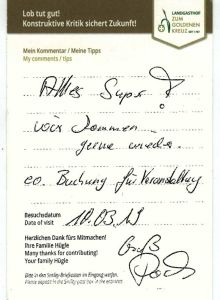 Lob tut gut!
Konstruktive Kritik sichert Zukunft!
LANDGASTHOF
ZUM
GOLDENEN
KREUZ
Mein Kommentar / Meine Tipps
My comments / tips
Alles Super!
wir kommen
gerne wieder
eo. Buchung für Veranstaltung
Besuchsdatum
Date of visit
10.03.19
Herzlichen Dank fürs Mitmachen!
Ihre Familie Hügle
Many thanks for contributing!
Your family Hügle
Gruß
Bitte in den Smiley-Briefkasten im Eingang werfen.
Please deposit in the Smiley post box in the entrance.